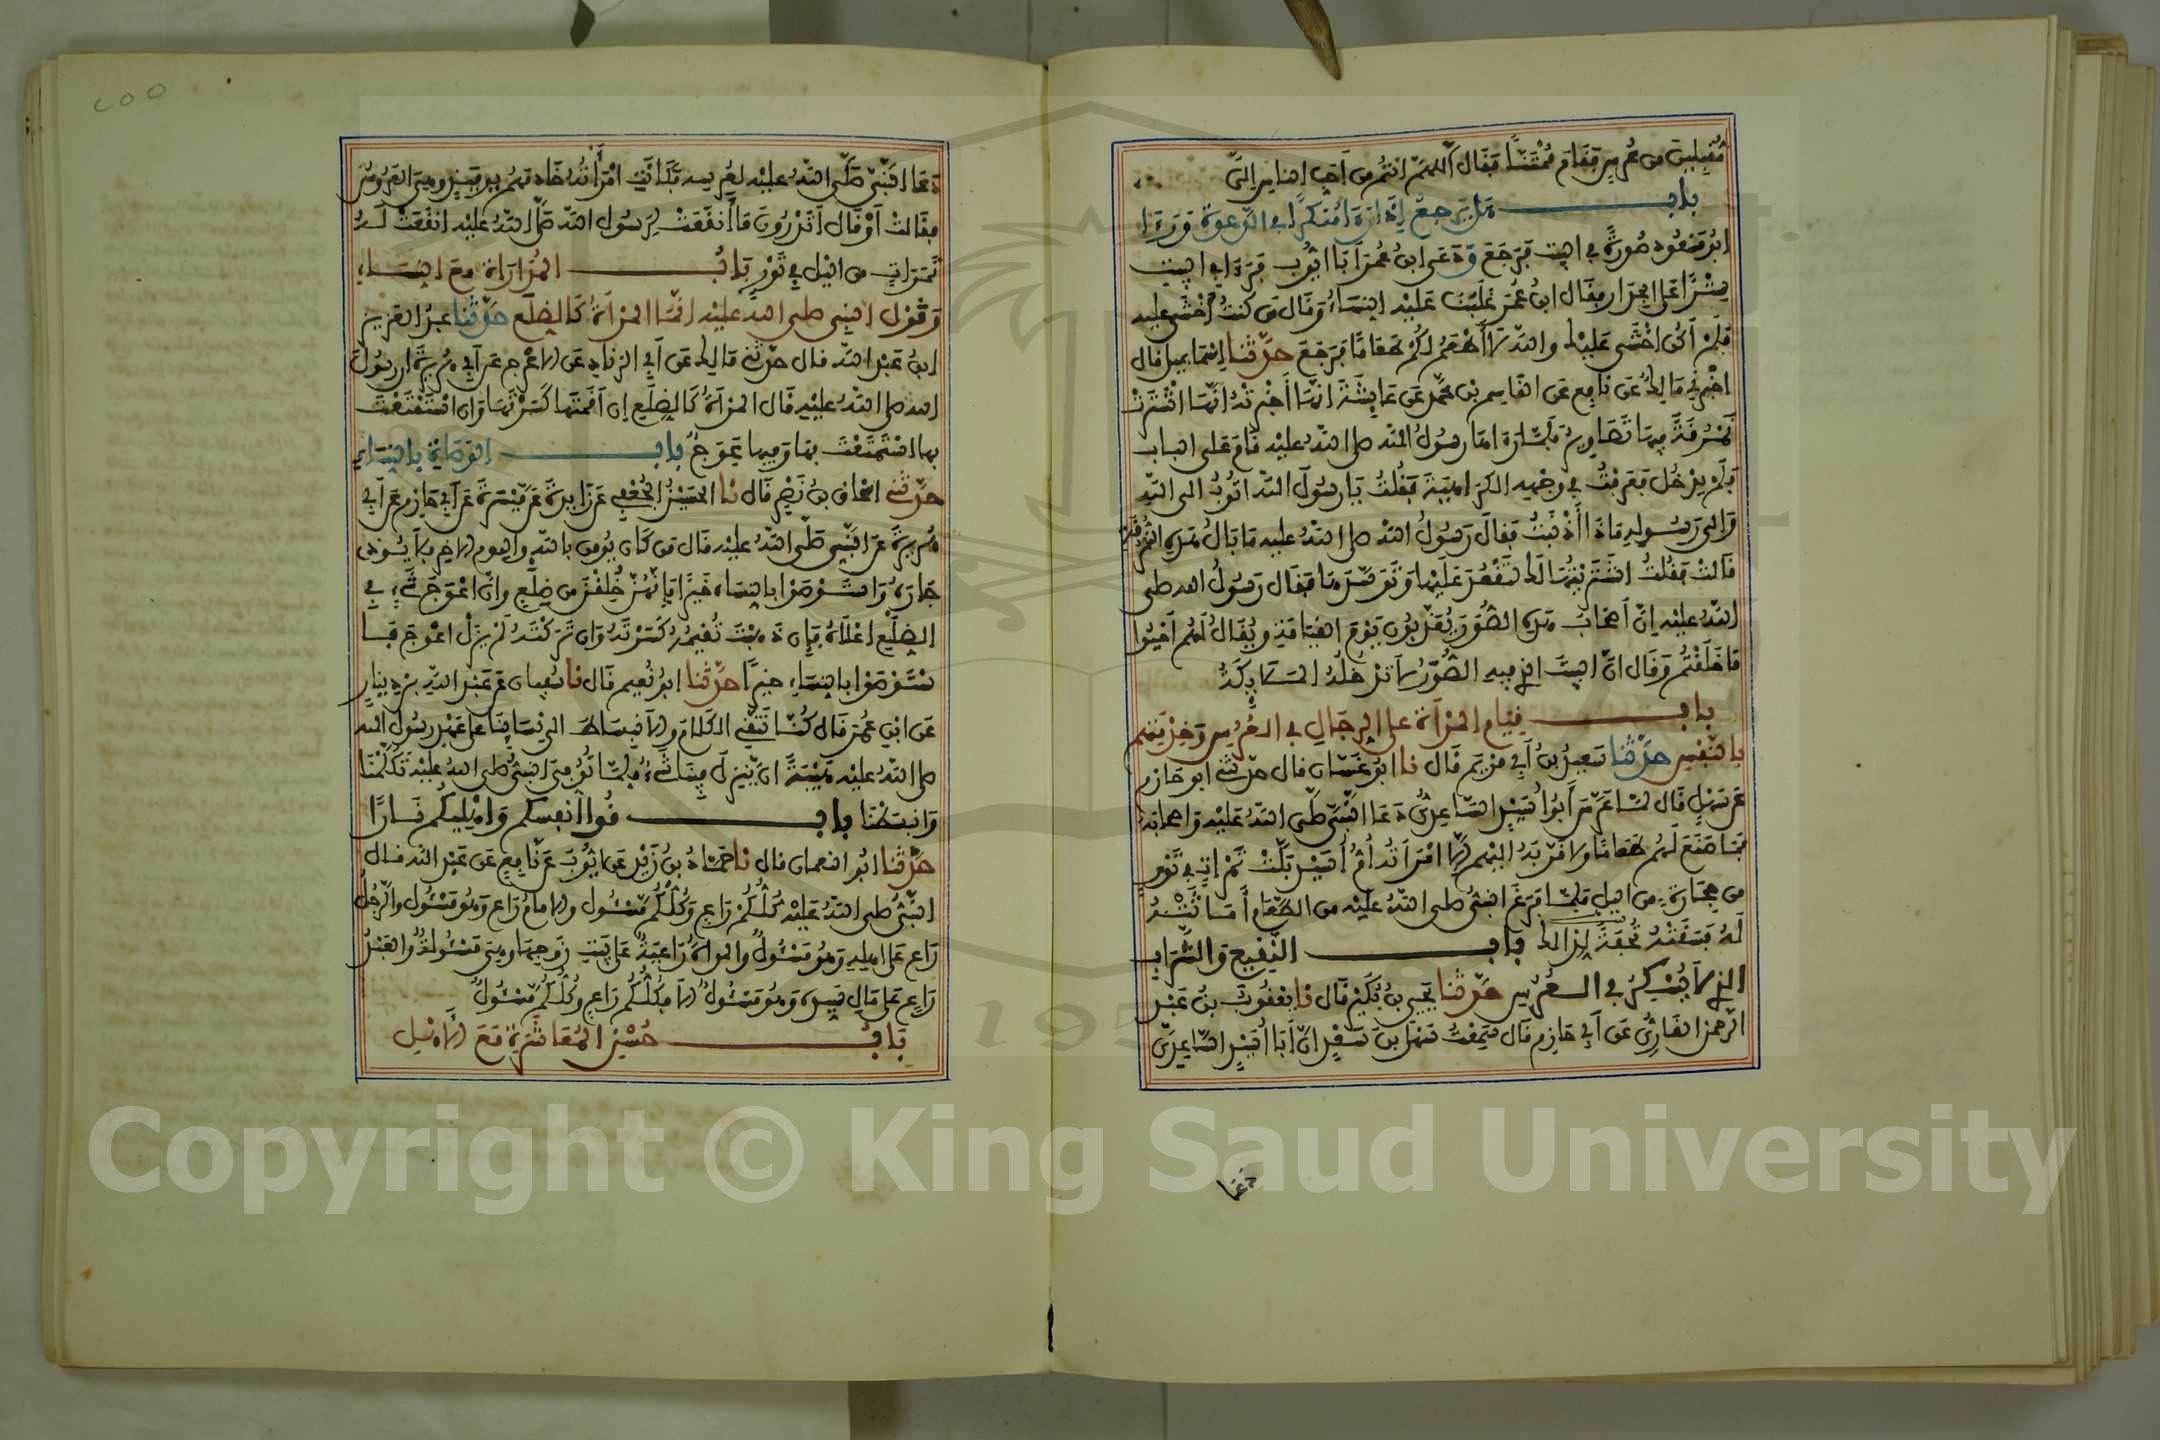 مقبلين من عرس فقام ممتنا فقال اللهم انتم من احب الناس الي
باب هل يرجع إذا رأى منكرا في الدعوة ورءا
ابو مسعود صورة في البيت فرجع ودعى ابن عمر ابا ايوب فرءا في البيت
سترا على الجدار فقال ابن عمر غلبنا عليه النساء وقال من كنت أخشى عليه
فلم اكن اخشى عليك والله لا أطعم لكم طعاما فرجع حدثنا إسماعيل قال
اخبرني مالك عن نافع عن القاسم بن محمد عن عايشة انها أخبرته انها اشترت
نمرقة فيها تصاوير فلما رءاها رسول الله صلى الله عليه قام على الباب
فلم يدخل فعرفت في وجهه الكراهية فقلت يا رسول الله اتوب الى الله
والى رسوله ماذا أذنبت فقال رسول الله صلى الله عليه ما بال هذه النمرقة
قالت فقلت اشتريتها لك لتقعد عليها وتوسدها فقال رسول الله صلى
الله عليه إن أصحاب هذه الصور يعذبون يوم القيامة ويقال لهم احيوا
ما خلقتم وقال ان البيت الذي فيه الصور لا تدخله الملايكة
باب قيام المرأة على الرجال في العرس وخدمتهم
بالنفس حدثنا سعيد بن أبي مريم قال نا ابو غسان قال حدثني ابو حازم
عن سهل قال لما عرس أبو أسيد الساعدي دعا النبي صلى الله عليه وأصحابه
فما صنع لهم طعاما ولا قربه اليهم إلا امرأته أم أسيد بلت تمرات في تور
من حجارة من الليل فلما فرغ النبي صلى الله عليه من الطعام أماثته
له فسقته تحفة بذلك باب النقيع والشراب
الذي لا يسكر في العرس حدثنا يحيى بن بكير قال نا يعقوب بن عبد
الرحمن القاري عن أبي حازم قال سمعت سهل بن سعد ان أبا أسيد الساعدي
دعا
٢٥٥
دعا النبي صلى الله عليه لعرسه فكانت امرأته خادمهم يوميذ وهي العروس
فقالت أو قال أتدرون ما أنقعت لرسول الله صلى الله عليه انقعت له
تمرات من الليل في تور باب المداراة مع النساء
وقول النبي صلى الله عليه انما المرأة كالضلع حدثنا عبد العزيز
ابن عبد الله قال حدثني مالك عن أبي الزناد عن الأعرج عن أبي هريرة ان رسول
الله صلى الله عليه قال المرأة كالضلع إن أقمتها كسرتها وان استمتعت
بها استمتعت بها وفيها عوج باب الوصاية بالنساء
حدثني اسحاق بن نصر قال نا الحسين الجعفي عن زايدة عن ميسرة عن أبي حازم عن أبي
هريرة عن النبي صلى الله عليه قال من كان يومن بالله واليوم الاخر فلا يوذي
جاره واستوصوا بالنساء خيرا فإنهن خلقن من ضلع وان اعوج شيء في
الضلع اعلاه فإن ذهبت تقيمه كسرته وان تركته لم يزل اعوج فا
ستوصوا بالنساء خيرا حدثنا ابو نعيم قال نا سفيان عن عبد الله بن دينار
عن ابن عمر قال كنا نتقي الكلام والانبساط الى نساينا على عهد رسول الله
صلى الله عليه هيبة ان ينزل فينا شيء فلما توفي النبي صلى الله عليه تكلمنا
وانبسطنا باب قوا أنفسكم وأهليكم نارا
حدثنا ابو النعمان قال نا حماد بن زيد عن ايوب عن نافع عن عبد الله قال
النبي صلى الله عليه كلكم راع وكلكم مسئول والامام راع وهو مسئول والرجل
راع على اهله وهو مسئول والمرأة راعية على بيت زوجها وهي مسئولة والعبد
راع على مال سيده وهو مسئول الا فكلكم راع وكلكم مسئول
باب حسن المعاشرة مع الأهل
Copyright © King Saud University